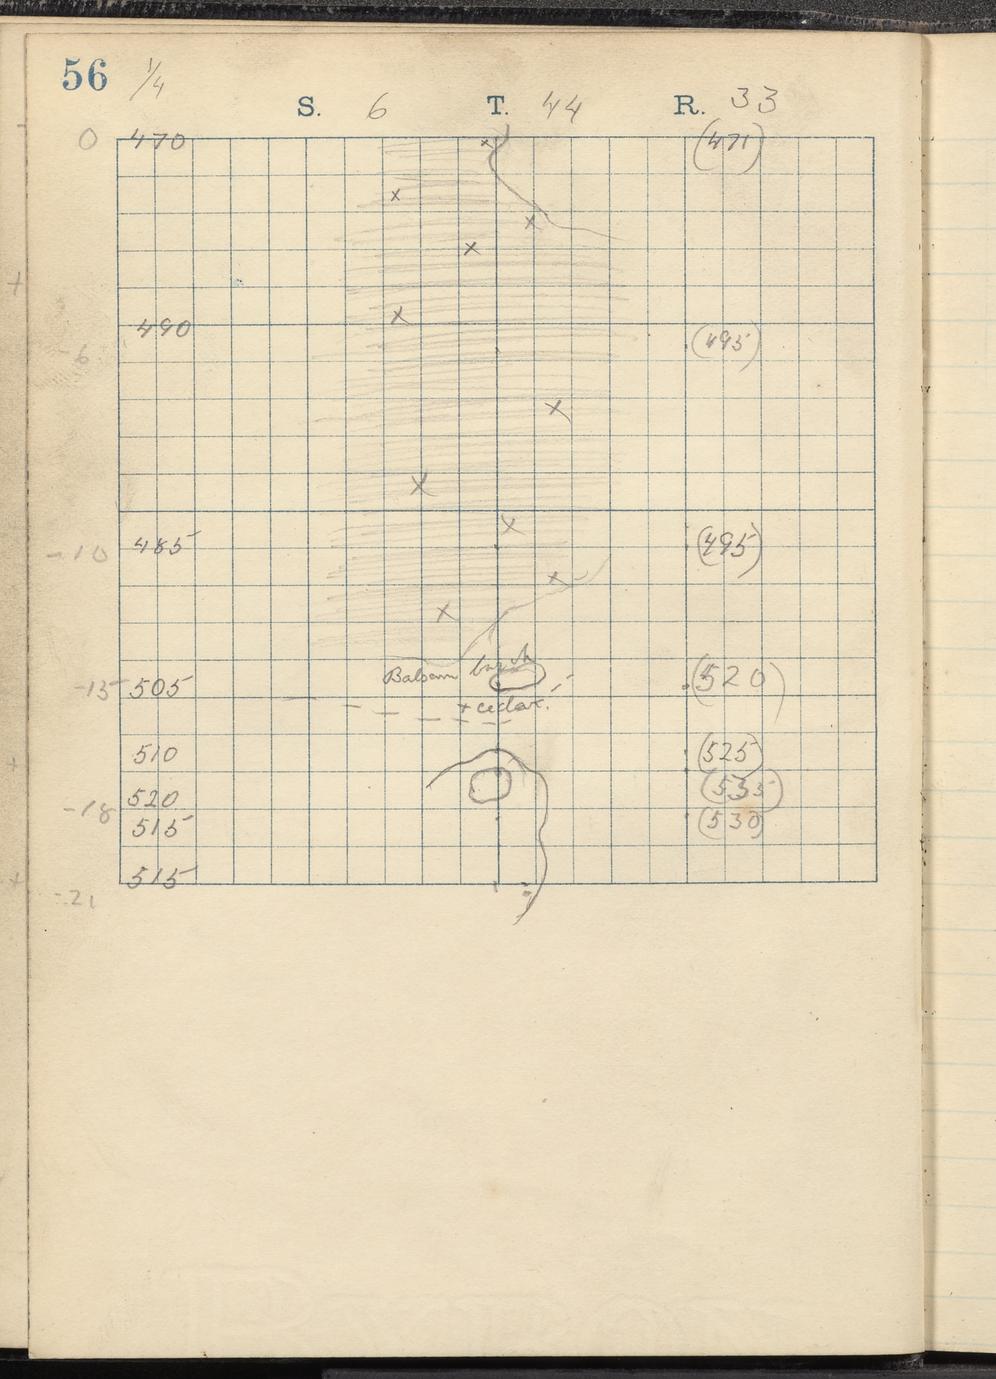 56 1/4
S. 6 T. 44 R. 33
0 470 (471)
490 (495)
-6
-10 485 (495)
Balsam birch
-15 505 (520)
+ cedar.
510 (525)
520 (535)
-18 515 (530)
515
-21